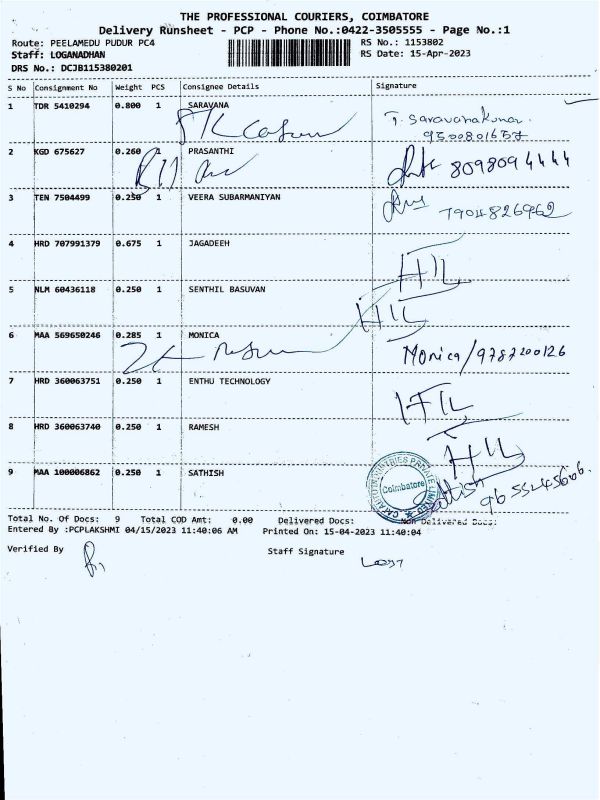 THE PROFESSIONAL COURIERS, COIMBATORE
Delivery Runsheet - PCP - Phone No.:0422-3505555 - Page No.:1
Route: PEELAMEDU PUDUR PC4
RS No.: 1153802
Staff: LOGANADHAN
RS Date: 15-Apr-2023
DRS No.: DCJB115380201
S No Consignment No Weight PCS Consignee Details Signature
1 TDR 5410294 0.800 1 SARAVANA
T. Saravanakumar.
9500801657
2 KGD 675627 0.260 1 PRASANTHI
8098094444
3 TEN 7504499 0.250 1 VEERA SUBARMANIYAN
7904826962
4 HRD 707991379 0.675 1 JAGADEEH
HIL
5 NLM 60436118 0.250 1 SENTHIL BASUVAN
HIL
6 MAA 569650246 0.285 1 MONICA
Monica/9787200126
7 HRD 360063751 0.250 1 ENTHU TECHNOLOGY
HIL
8 HRD 360063740 0.250 1 RAMESH
HIL
9 MAA 100006862 0.250 1 SATHISH
Sathish
Coimbatore
Total No. Of Docs: 9 Total COD Amt: 0.00 Delivered Docs: Non Delivered Docs:
Entered By :PCPLAKSHMI 04/15/2023 11:40:06 AM Printed On: 15-04-2023 11:40:04
Verified By
Staff Signature